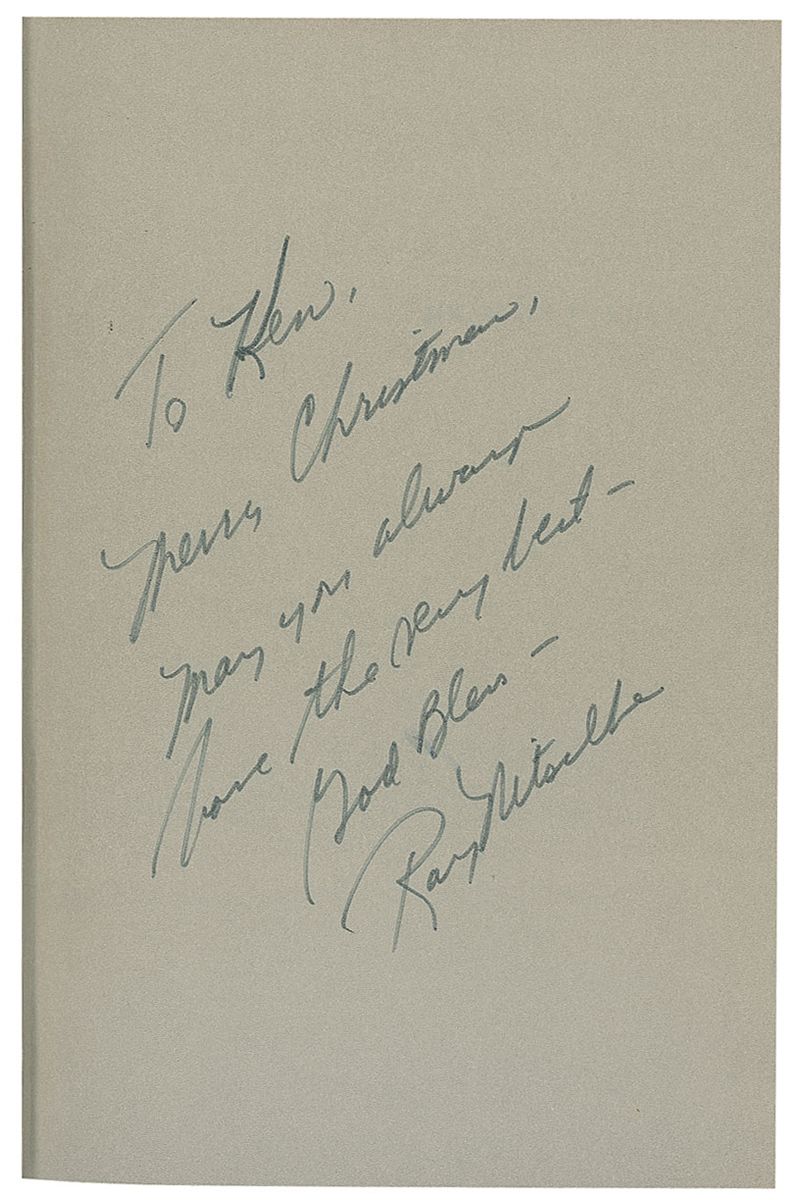 To Ken,
Merry Christmas,
may you always
have the very best -
God Bless -
Ray Nitschke